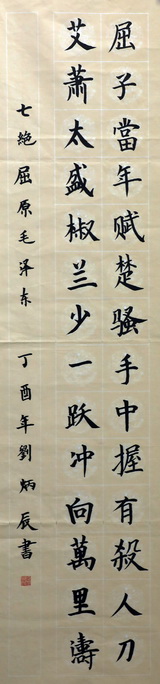 屈子當年赋楚骚手中握有殺人刀
艾萧太盛椒兰少一跃冲向萬里濤
七绝 屈原 毛泽东 丁酉年劉炳辰書